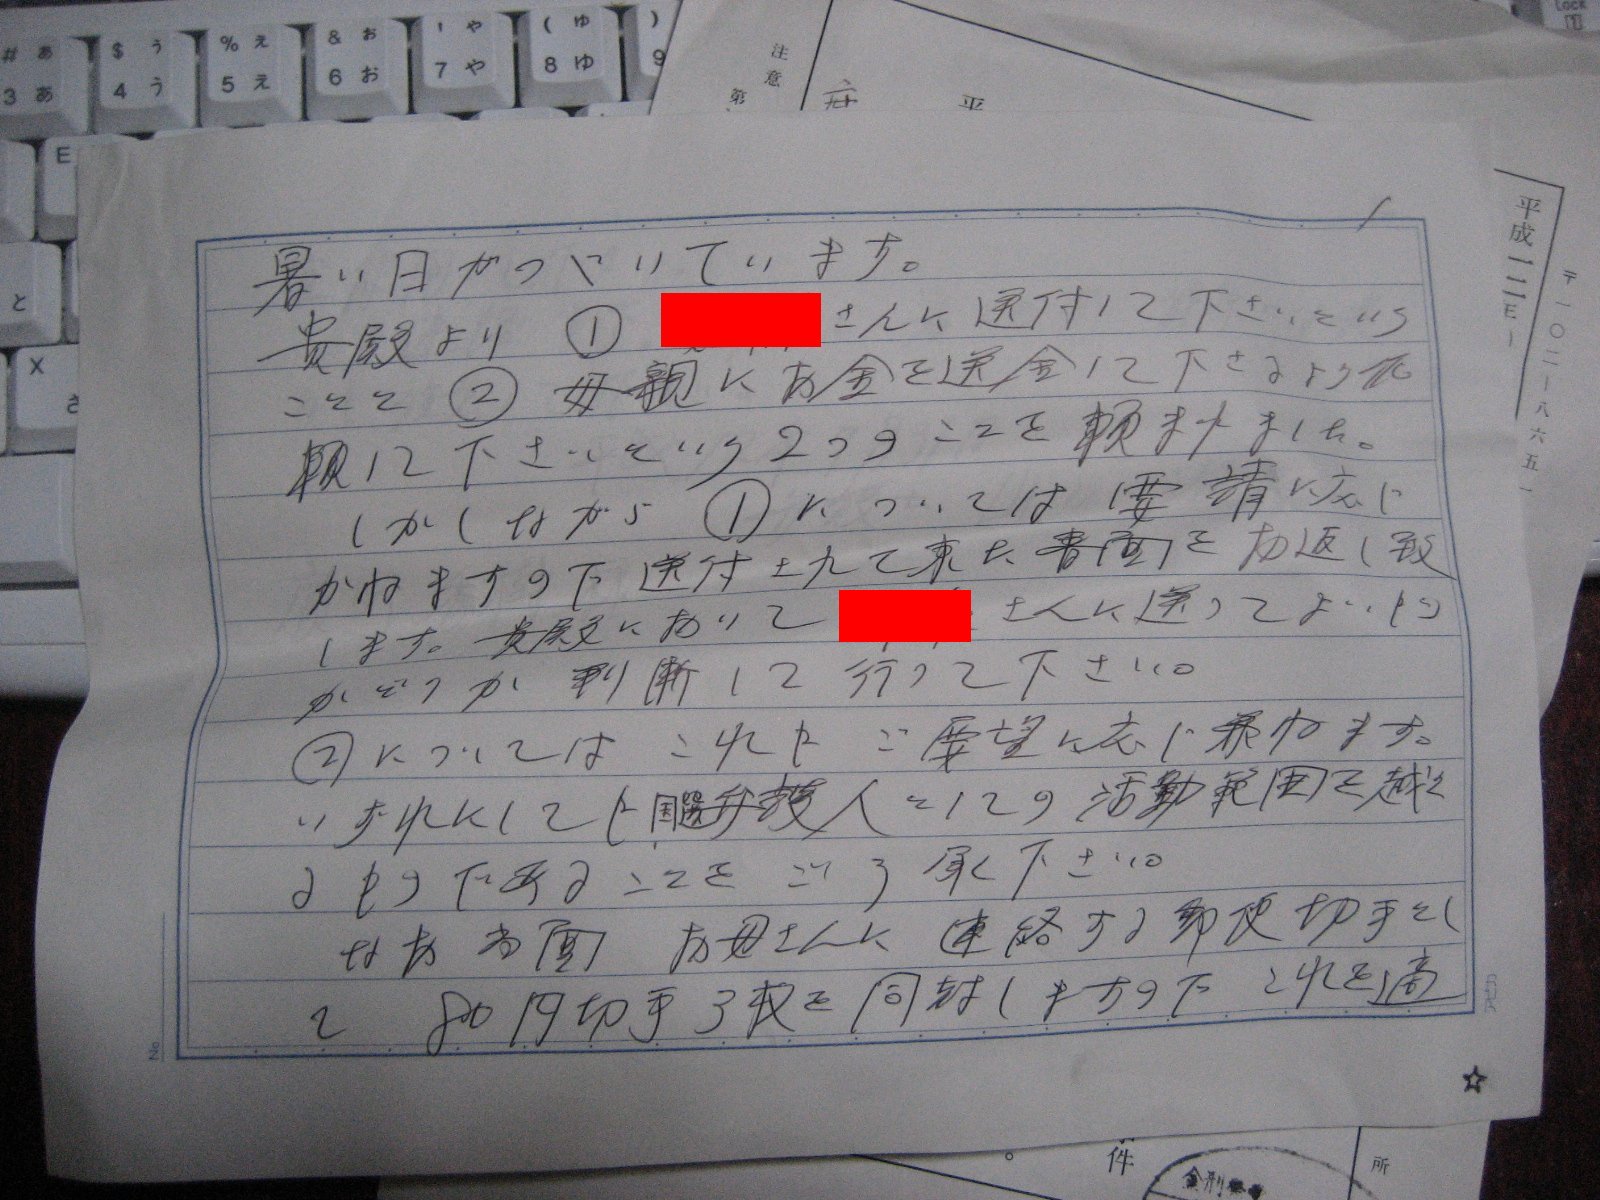 # ぁ 3 あ
$ ぅ 4 う
% ぇ 5 え
& ぉ 6 お
' ゃ 7 や
( ゅ 8 ゆ
) 9
E
と
X さ
注意
第
平
平成二二
〒一〇二-八六五一
暑い日がつづいています。
貴殿より ① さんに送付して下さいという
ことと ② 母親にお金を送金して下さるよう依
頼して下さいという2つのことを頼まれました。
しかしながら ①については要請に応じ
かねますので送付されて来た書面をお返し致
します。貴殿において さんに送ってよいもの
かどうか判断して行って下さい。
②についてはこれもご要望に応じ兼ねます。
いずれにしても国選弁護人としての活動範囲を越え
るものであることをごう承下さい。
なお当面 お母さんに連絡する郵便切手とし
て 80円切手3枚を同封しますので これを適
No.
☆
件
所